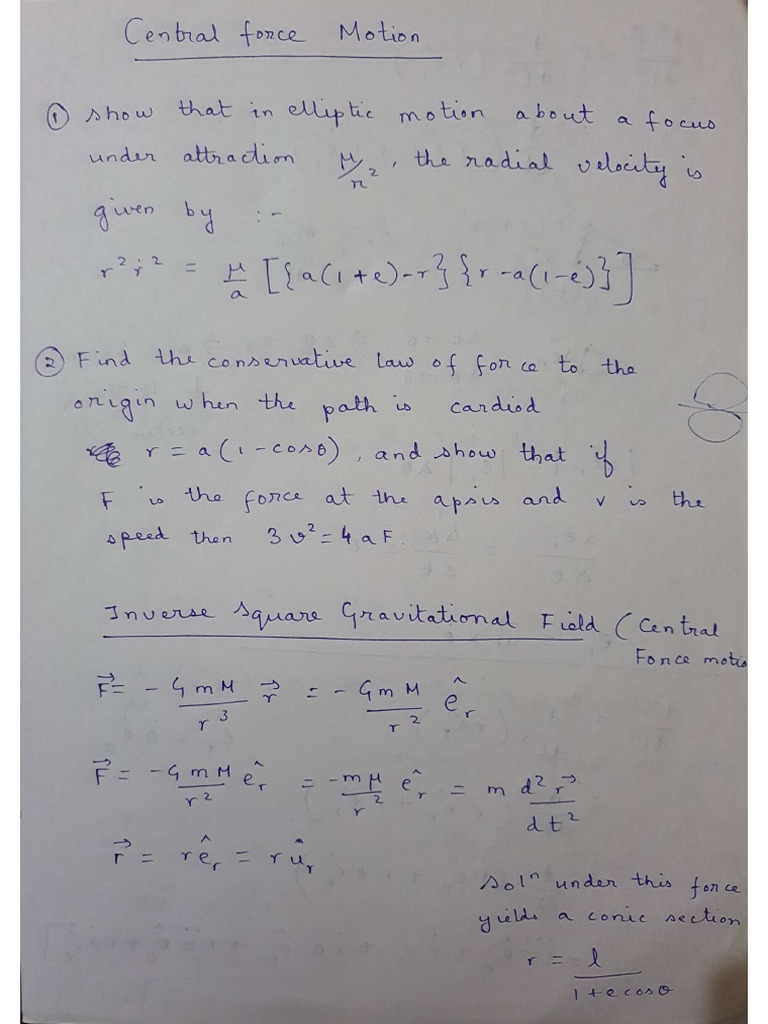 Central force Motion
① Show that in elliptic motion about a focus
under attraction μ/r², the radial velocity is
given by :-
r²ṙ² = μ/a [{a(1+e)-r}{r-a(1-e)}]
② Find the conservative law of force to the
origin when the path is cardiod
r = a(1-cosθ), and show that if
F is the force at the apsis and v is the
speed then 3v² = 4aF.
Inverse Square Gravitational Field (Central
Force motio
F⃗ = - GmM/r³ r⃗ = - GmM/r² ê_r
F⃗ = -GmM/r² ê_r = -mμ/r² ê_r = m d²r⃗/dt²
r⃗ = rê_r = rû_r
Solⁿ under this force
yields a conic section
r = l/(1+ecosθ)